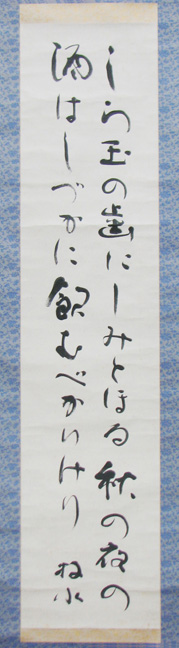 しら玉の歯にしみとほる秋の夜の
酒はしづかに飲むべかりけり
牧水